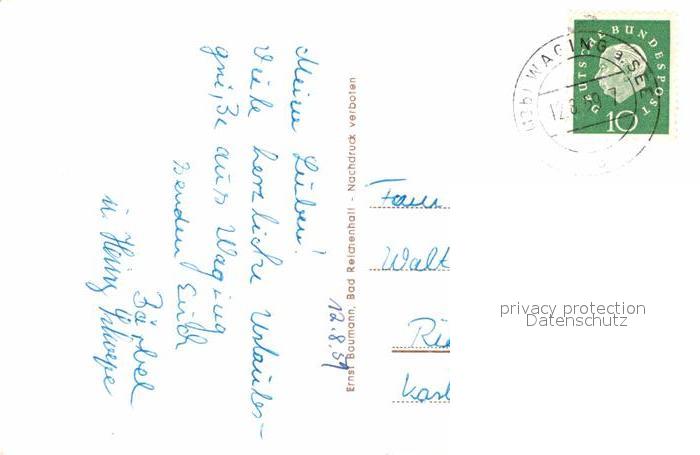 Meine Lieben!
Viele herzliche Urlaubs-
grüße aus Waging
senden Euch
Bärbel
u. Heinz
12.8.59
Ernst Baumann, Bad Reichenhall - Nachdruck verboten
WAGING a. SEE
12.8.59
DEUTSCHE BUNDESPOST
10
Fam
Walt
Rie
Karl
privacy protection
Datenschutz